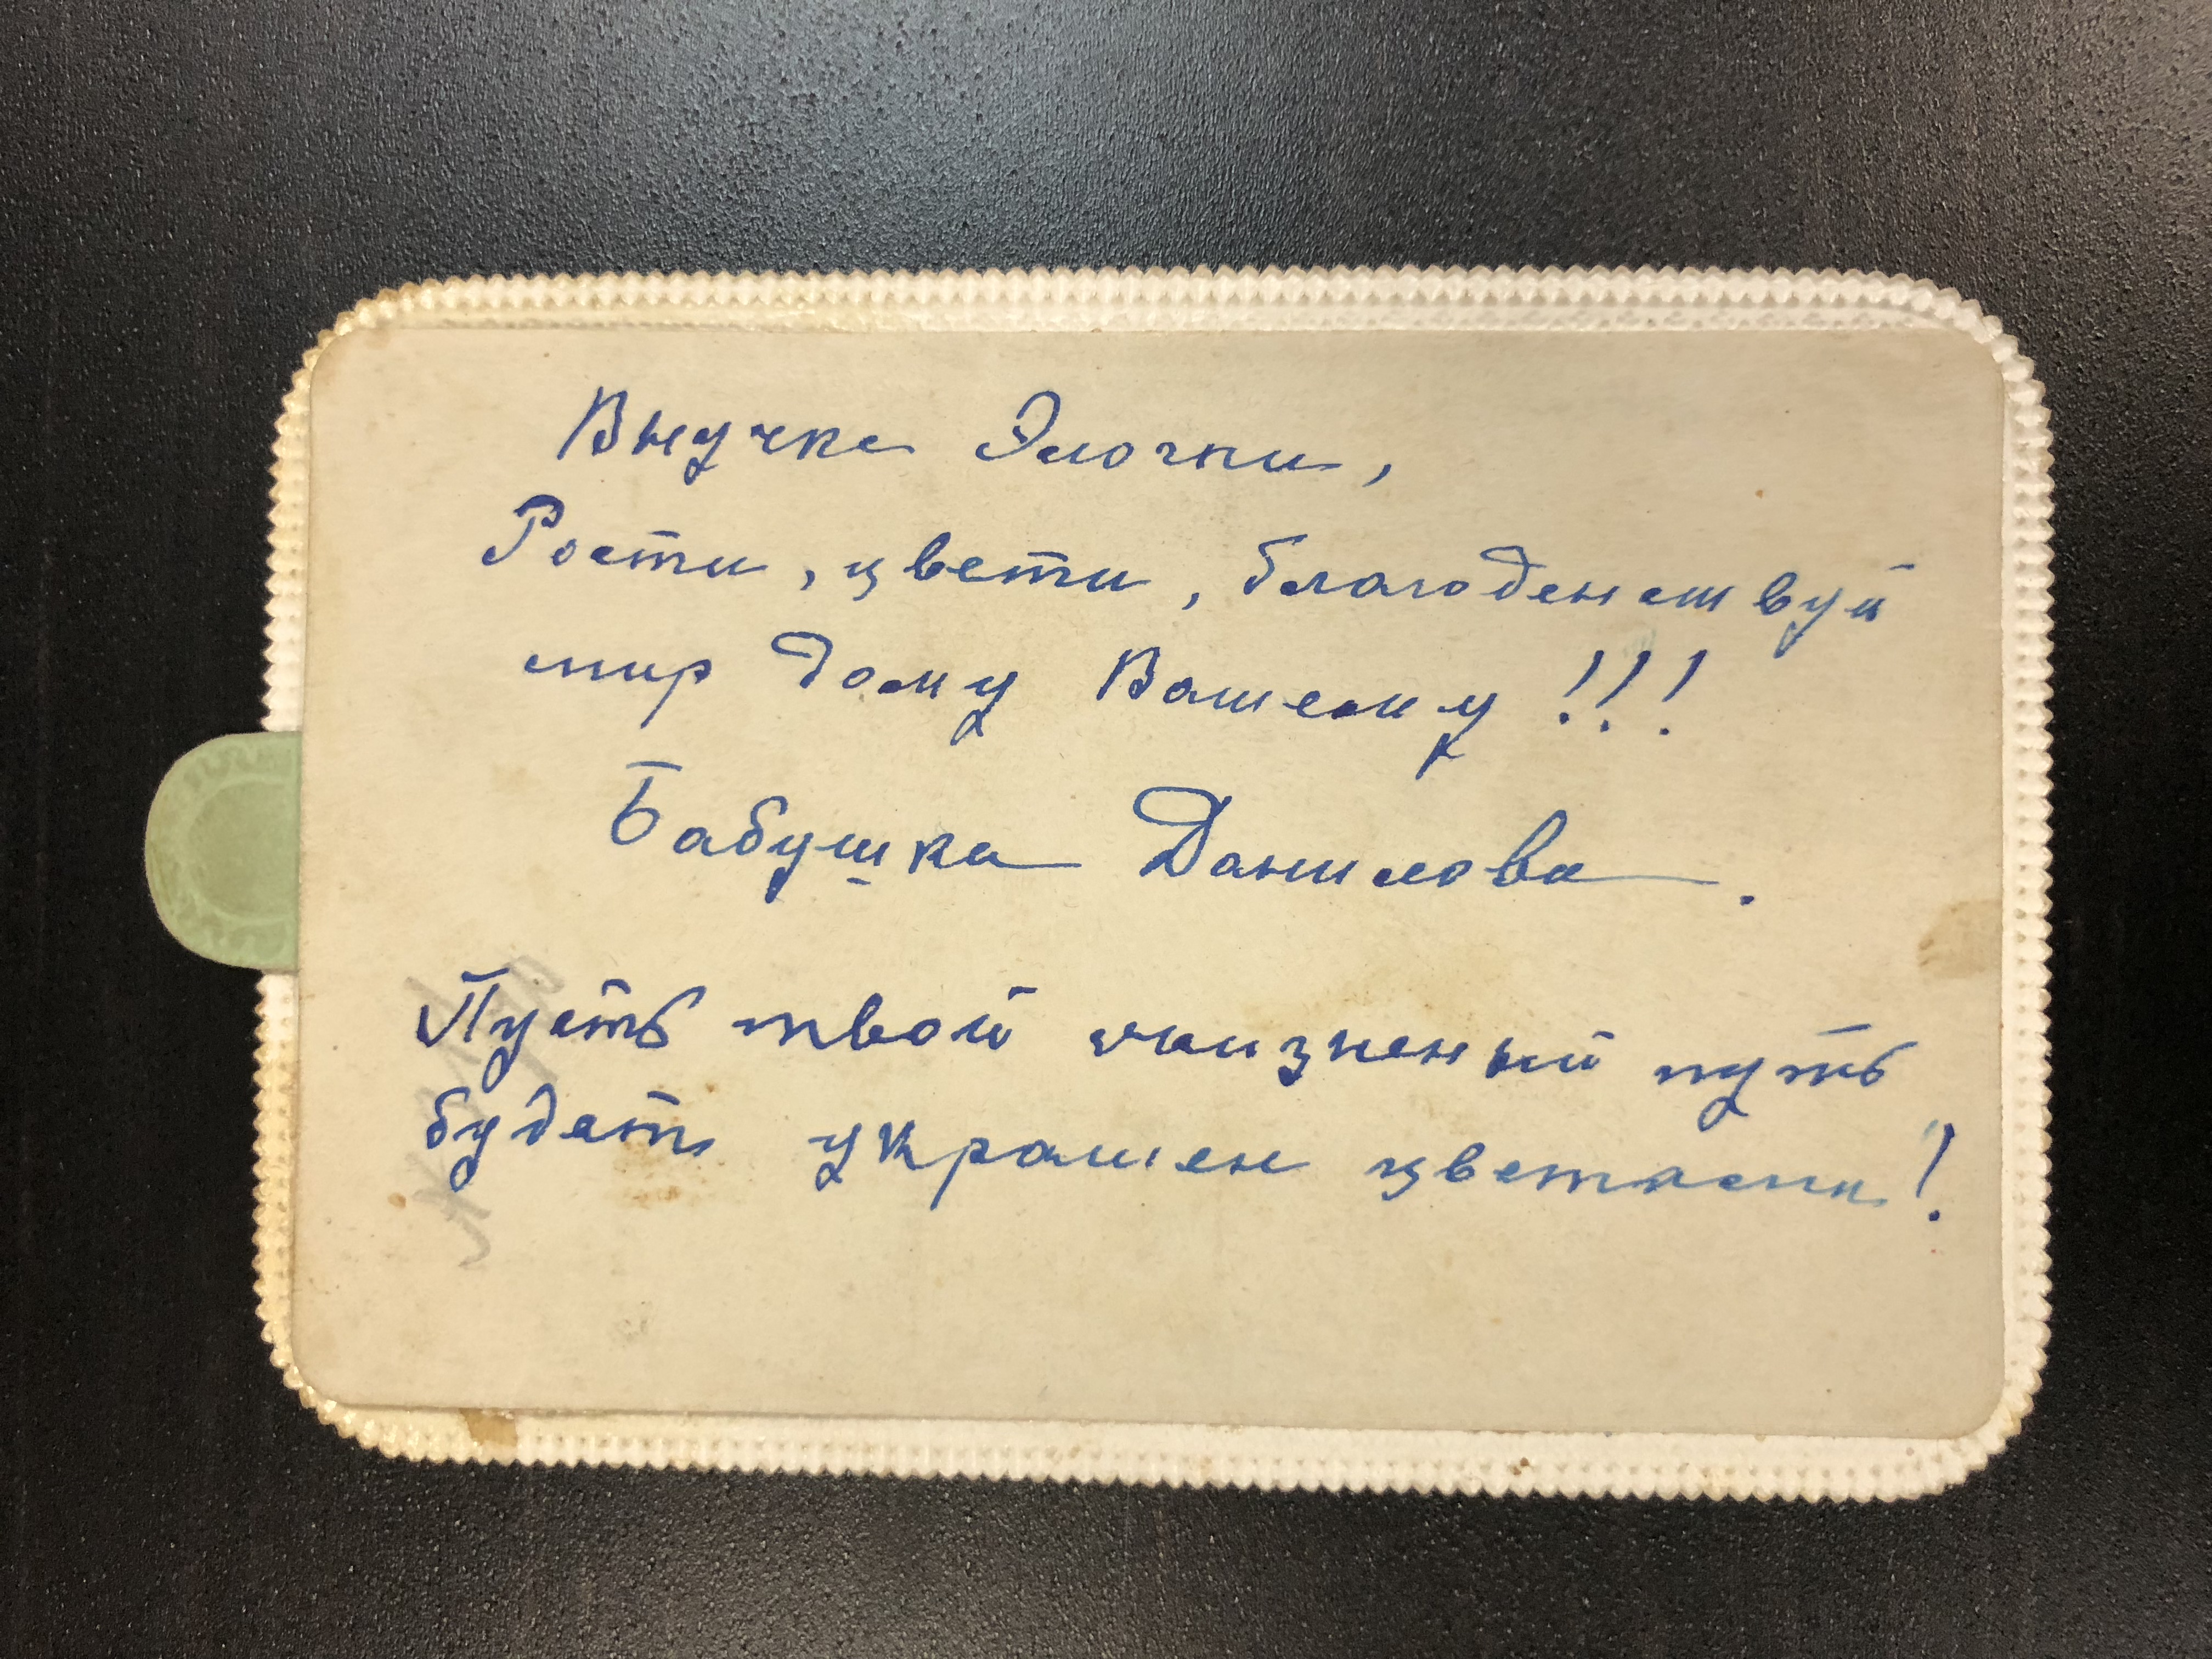 Внучке Элочки,
Рости, цвети, благоденствуй
мир дому Вашему!!!
Бабушка Данилова.
Пусть твой жизненый путь
будеть украшен цветками!